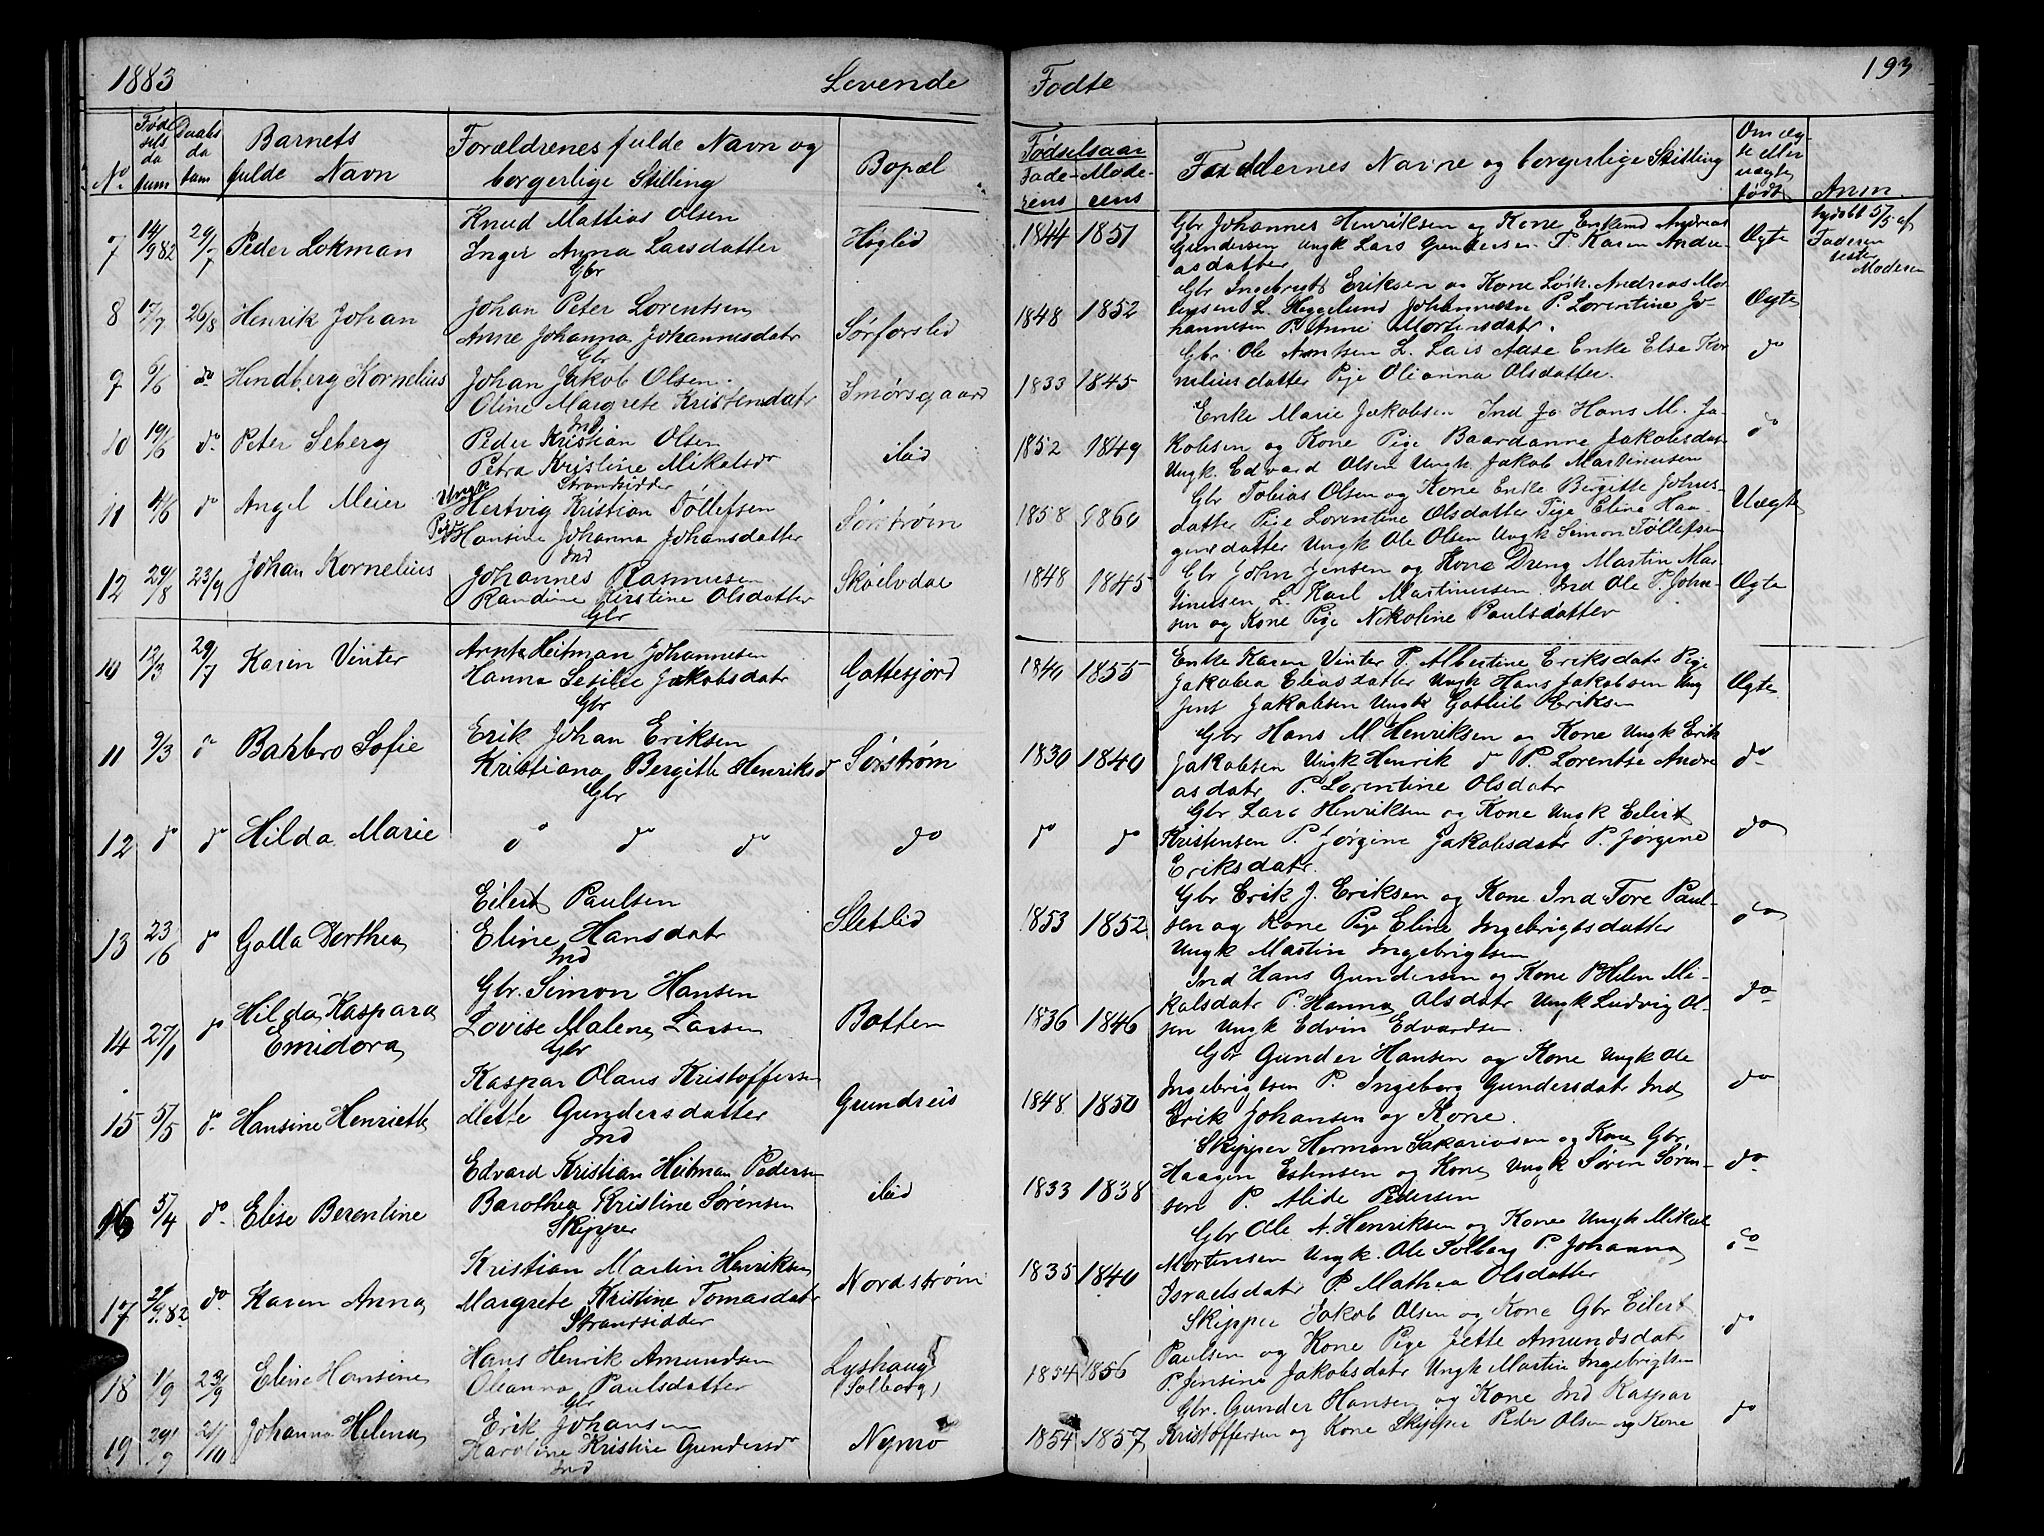 1883
Levende
Fødte
193
No
Fødselsdatum
Daabsdatum
Barnets
fulde Navn
Forældrenes fulde Navn og
borgerlige Stilling
Bopæl
Fødselsaar
Faderens
Moderens
Faddernes Navne og borgerlige Stilling
Om ægte eller uægte født
Anm
7 14/9 82 29/7 Peder Lokman
Knud Mattias Olsen
Inger Anna Larsdatter
Gbr
Høglid
1844 1851
Gbr Johannes Henriksen og Kone Enkemd Andreas
Gundersen Ungk Lars Gundersen P Karen Andre-
asdatter
Ægte
hjdøbt 5/5 af
Faderen
Moderen
8 17/7 26/8 Henrik Johan
Johan Peter Lorentsen
Anne Johanna Johannesdatr
Gbr
Sørforslid
1848 1852
Gbr Ingebrigt Eriksen og Kone Løsk. Andreas Mor
tensen L. Hegelund Johannesen P. Lorentine Jo-
hannesen P. Anne Mortensdatr.
Ægte
9 6/6 do Hindberg Kornelius
Johan Jakob Olsen
Oline Margrete Kristensdatr
Ind
Smørsgaard
1833 1845
Gbr Ole Arntsen L. Lars Adse Enke Else Kor
neliusdatter Pige Olianna Olsdatter.
do
10 19/6 do Peter Seberg
Peder Kristian Olsen
Petra Kristine Mikalsdr
Strandsidder
ibid
1852 1849
Enke Marie Jakobsen Ind Jo Hans M. Ja-
kobsen og Kone Pige Baardanne Jakobsdat
Ungk. Edvard Olsen Ungk Jakob Martinusen
do
11 4/6 do Angel Meier
Ungk Hertvig Kristian Tøllefsen
Pige Hansine Johanna Johansdatter
Ind
Sørstrøm
1858 1860
Gbr Tobias Olsen og Kone Enke Bergitte Johns-
datter Pige Lorentine Olsdatter Pige Eline Haa-
gensdatter Ungk Ole Olsen Ungk Simon Tøllefsen
Uægte
12 29/8 23/9 Johan Kornelius
Johannes Rasmusen
Randine Kirstine Olsdatter
Gbr
Skoelvdal
1848 1845
Gbr John Jensen og Kone Dreng Martin Mar
tinusen L. Karl Martinusen. Ind Ole P. John-
sen og Kone Pige Nikoline Paulsdatter
Ægte
10 12/3 29/7 Karen Vinter
Arnt Heitman Johannesen
Hanna Sesilie Jakobsdatr
Gbr
Gattefjord
1840 1855
Enke Karen Vinter P. Albertine Eriksdatr Pige
Jakobea Eliasdatter Ungk Hans Jakobsen Ung
Jens Jakobsen Ungk Gotlieb Eriksen
Ægte
11 9/3 do Barbro Sofie
Erik Johan Eriksen
Kristiana Bergitte Henriksd
Gbr
Sørstrøm
1830 1840
Gbr Hans M. Henriksen og Kone Ungk Erik
Jakobsen Ungk Henrik do P. Lorentse Andre
asdatr P. Lorentine Olsdatr
do
12 do do Hilda Marie
do do do
do
do do
Gbr Lars Henriksen og Kone Ungk Eilert
Kristensen P. Jørgine Jakobsdatr P. Jørgine
Eriksdatr.
do
13 23/6 do Golla Dorthea
Eilert Paulsen
Eline Hansdatr
Ind
Sletlid
1853 1852
Gbr Erik J. Eriksen og Kone Ind Tore Paul-
sen og Kone Pige Eline Ingebrigtsdatter
Ungk Martin Ingebrigtsen
do
14 27/1 do Hilda Kaspara
Emidora
Gbr. Simon Hansen
Lovise Malene Larsen
Gbr
Botten
1836 1846
Ind Hans Gundersen og Kone P Helen Mi-
kalsdatr P. Hanna Olsdatr Ungk Ludvig Ol-
sen Ungk Edvin Edvardsen.
do
15 5/5 do Hansine Henriette
Kaspar Olaus Kristoffersen
Mette Gundersdatter
Ind
Grundreis
1848 1850
Gbr Gunder Hansen og Kone Ungk Ole
Ingebrigtsen P. Ingeborg Gundersdatr Ind
Erik Johansen og Kone.
do
16 5/4 do Elise Berentine
Edvard Kristian Heitman Pedersen
Barothea Kristine Sørensen
Skipper
ibid
1833 1838
Skipper Herman Sakariasen og Kone Gbr
Haagen Estensen og Kone Ungk Søren Søren-
sen P. Alide Pedersen
do
17 21/9. 82 do Karen Anna
Kristian Martin Henriksen
Margrete Kristine Tomasdatr
Strandsidder
Nordstrøm
1835 1840
Gbr Ole A. Henriksen og Kone Ungk Mikal
Mortensen Ungk. Ole Solberg P. Johanna
Israelsdatr P. Mathea Olsdatter
do
18 1/9 23/9 Eline Hansine
Hans Henrik Amundsen
Oleanna Paulsdatter
Gbr
Lyshaug
(Solborg)
1854 1856
Skipper Jakob Olsen og Kone Gbr Eilert
Paulsen og Kone Pige Jette Amundsdatr
P. Jensine Jakobsdatr Ungk Martin Ingebrigtsen
do
19 29/9 21/10 Johanna Helena
Erik Johansen
Karoline Kristine Gundersdr
Ind
Nymo
1854 1857
Gbr. Gunder Hansen og Kone Ind Kaspar
Kristoffersen og Kone Skipper Peder Olsen og Kone
do